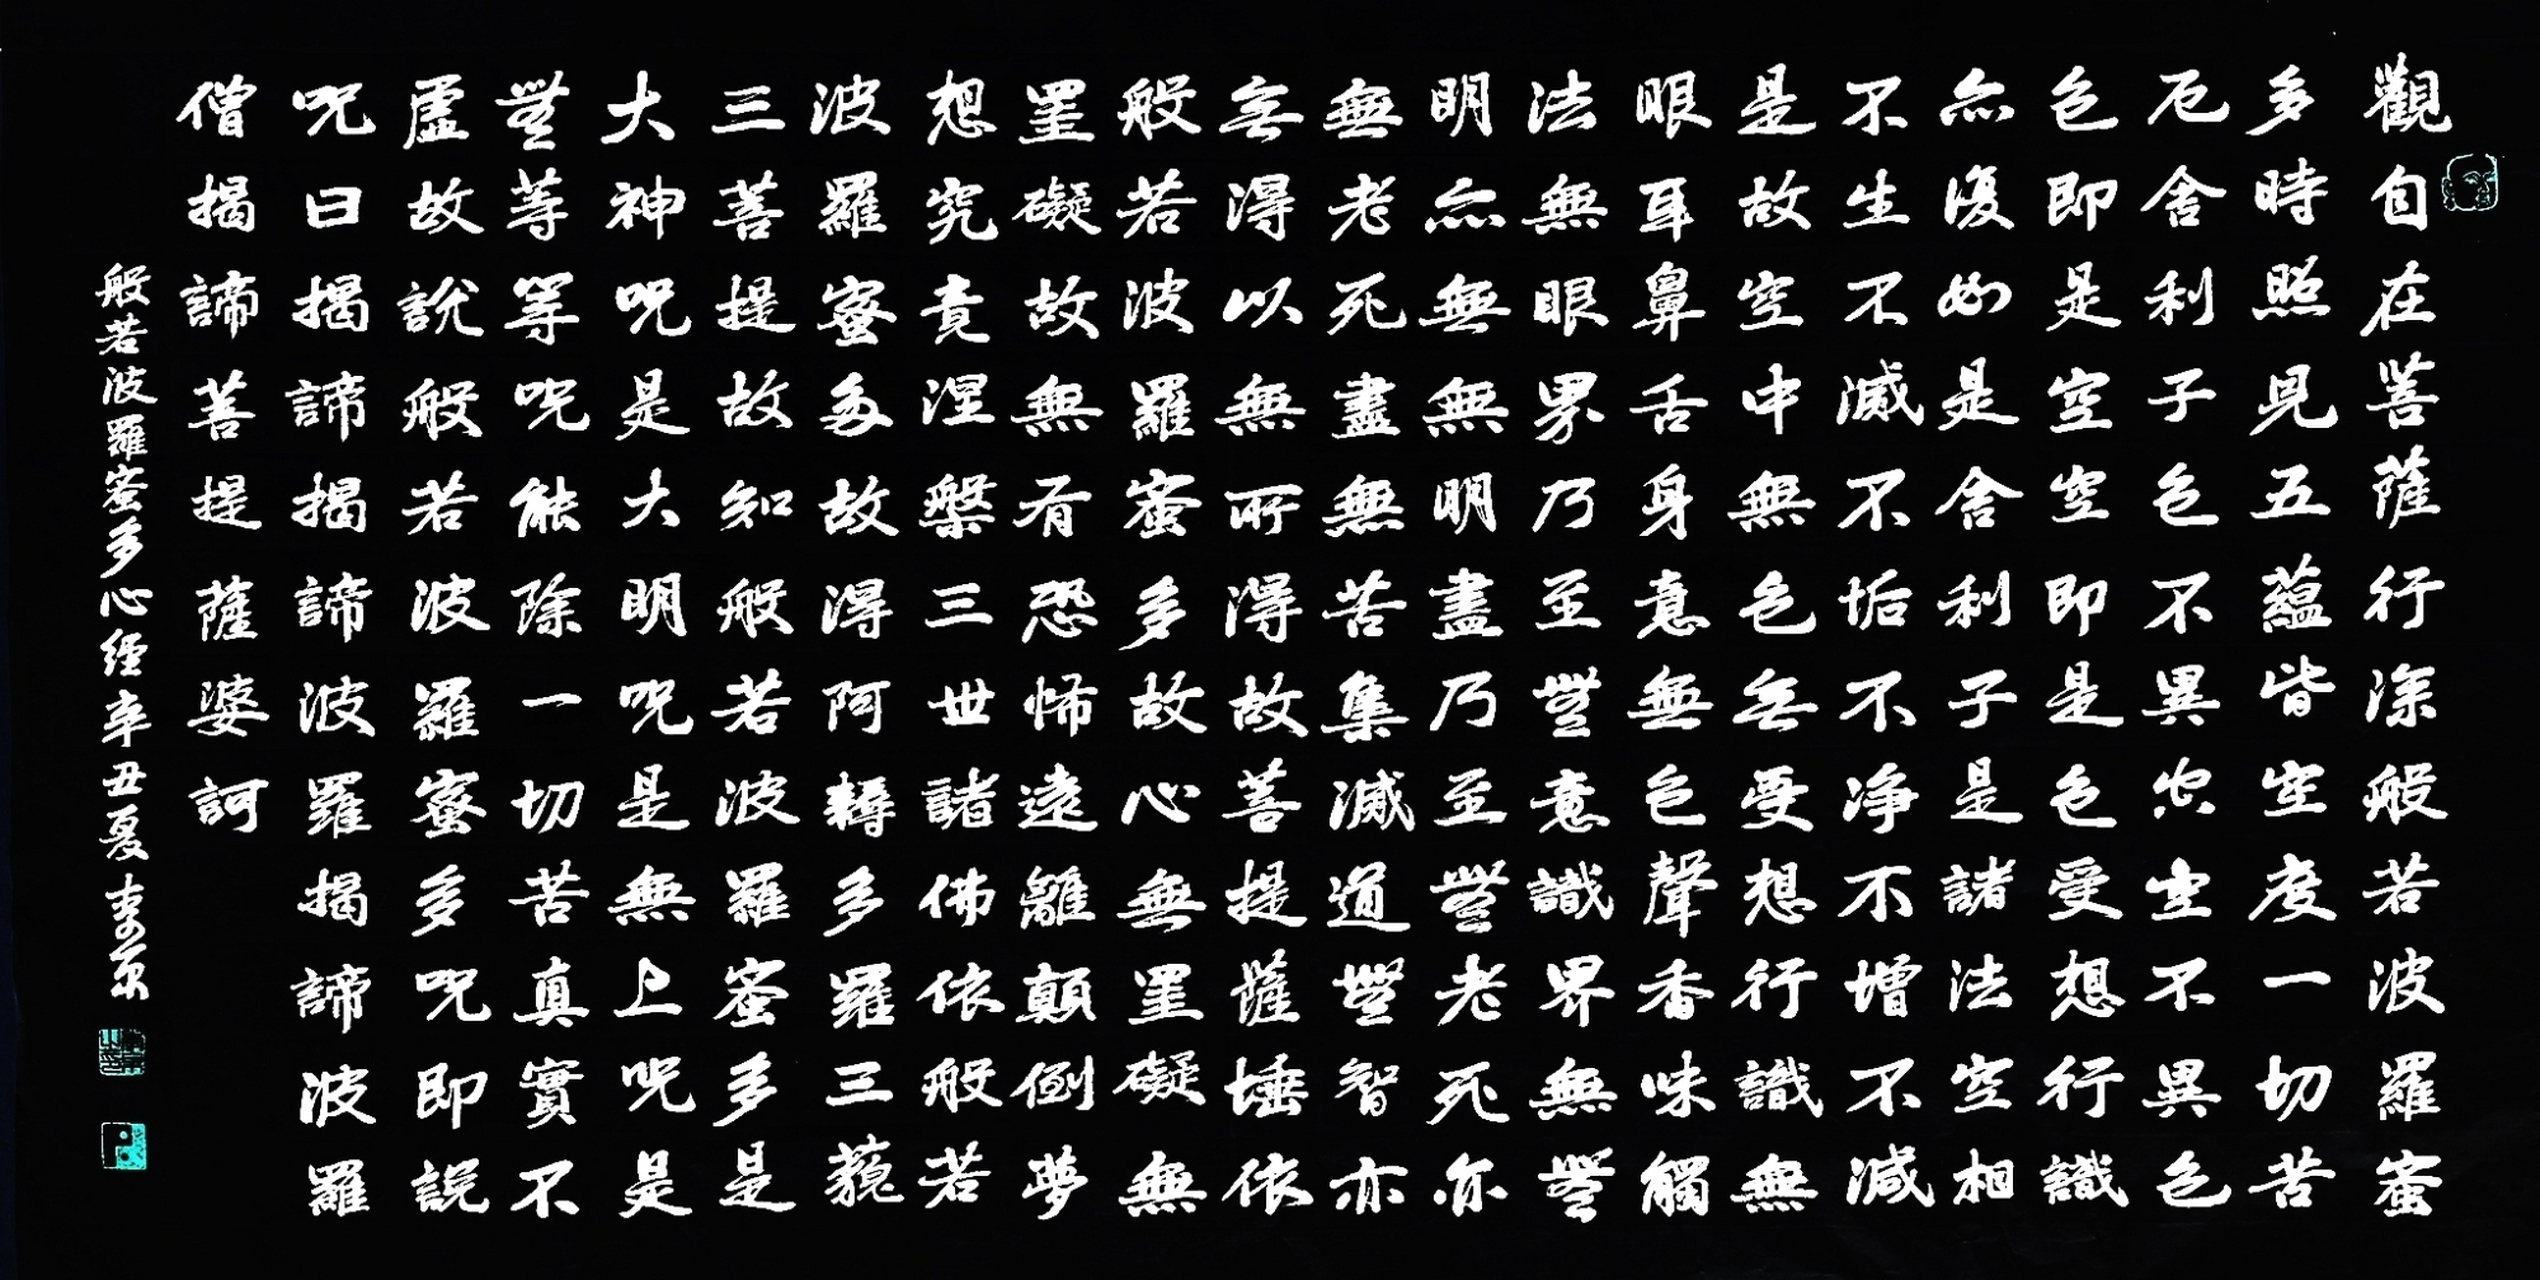 觀自在菩薩行深般若波羅蜜
多時照見五蘊皆空度一切苦
厄舍利子色不異空空不異色
色即是空空即是色受想行識
亦復如是舍利子是諸法空相
不生不滅不垢不净不增不減
是故空中無色无受想行識無
眼耳鼻舌身意無色聲香味觸
法無眼界乃至無意識界無無
明亦無無明盡乃至無老死亦
無老死盡無苦集滅道無智亦
无得以無所得故菩提薩埵依
般若波羅蜜多故心無罣礙無
罣礙故無有恐怖遠離顛倒夢
想究竟涅槃三世諸佛依般若
波羅蜜多故得阿耨多羅三藐
三菩提故知般若波羅蜜多是
大神咒是大明咒是無上咒是
無等等咒能除一切苦真實不
虛故説般若波羅蜜多咒即説
咒曰揭諦揭諦波羅揭諦波羅
僧揭諦菩提薩婆訶
般若波羅蜜多心經辛丑夏